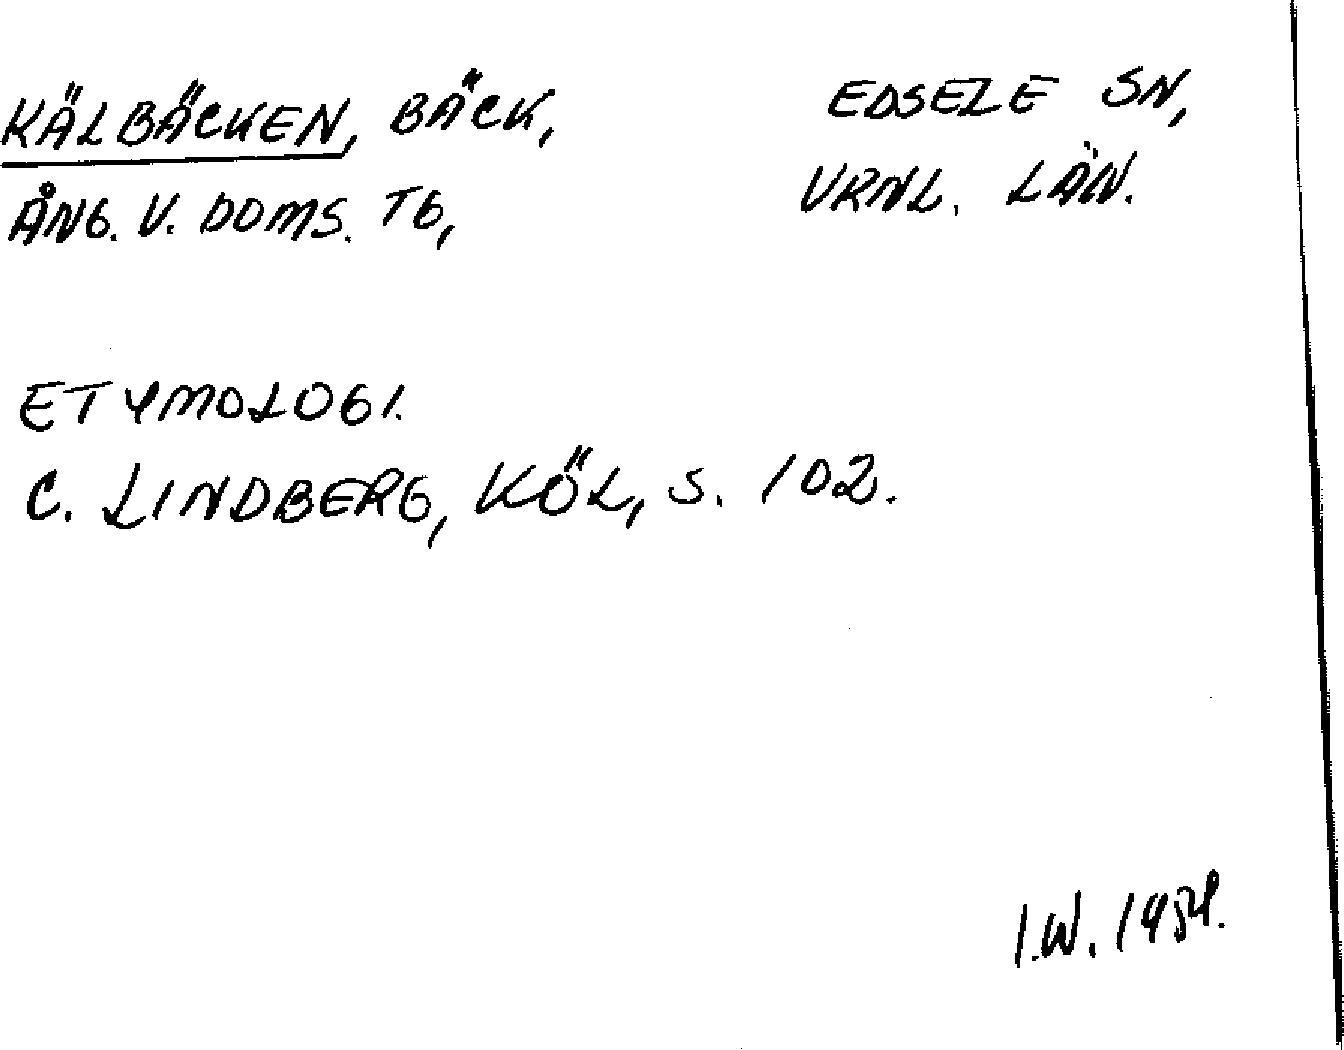 KÄLBÄCKEN, BÄCK,
EDSELE SN,
ÅNG. V. DOMS. TG,
VRNL. LÄN.
ETYMOLOGI.
C. LINDBERG, KÖL, S. 102.
I.W.